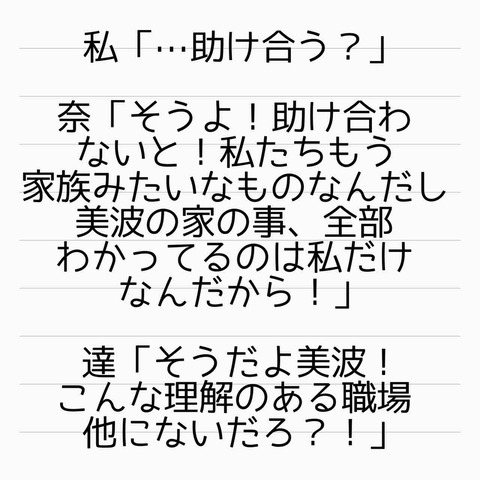 私「…助け合う？」
奈「そうよ！助け合わ
ないと！私たちもう
家族みたいなものなんだし
美波の家の事、全部
わかってるのは私だけ
なんだから！」
達「そうだよ美波！
こんな理解のある職場
他にないだろ？！」